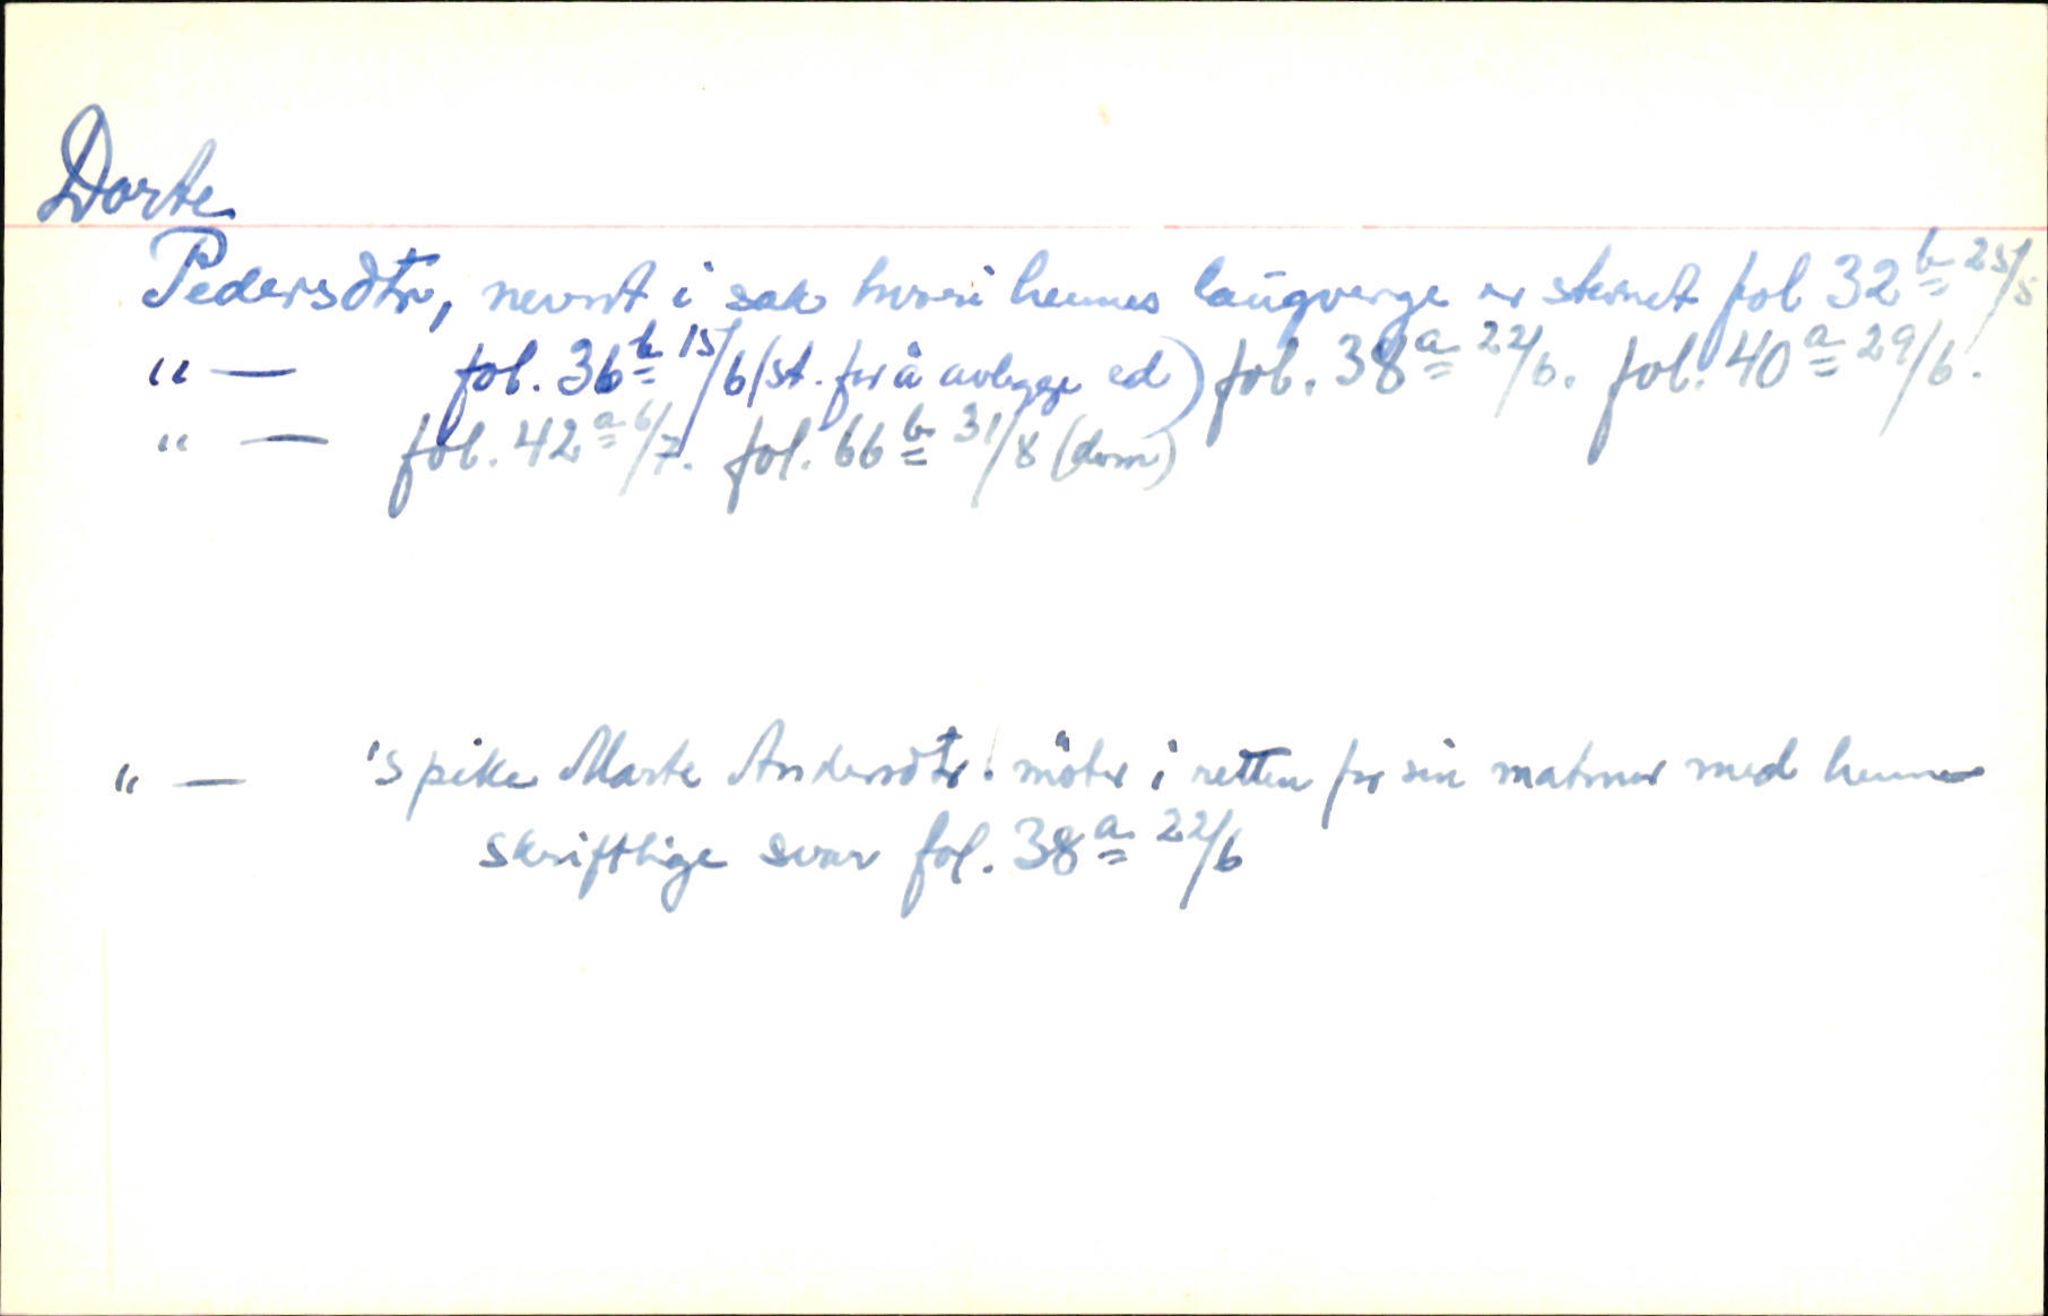 Dorte
Pedersdtr, nevnt i sak hvori hennes laugverge er stevnet fol 32 b 25/5
" — fol. 36 b 15/6 (st. for å avlegge ed) fol. 38 a 22/6. fol. 40 a 29/6.
" — fol. 42 a 6/7. fol. 66 b 31/8 (dom)
" — 's pike Marte Andersdtr. möter i retten for sin matmor med hennes
skriftlige svar fol. 38 a 22/6